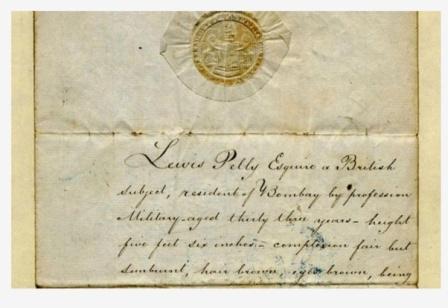 Lewis Pelly Esquire a British
subject, resident of Bombay by profession
Military - aged thirty three years - height
five feet six inches - complexion fair but
sunburnt, hair brown, eyes brown, being